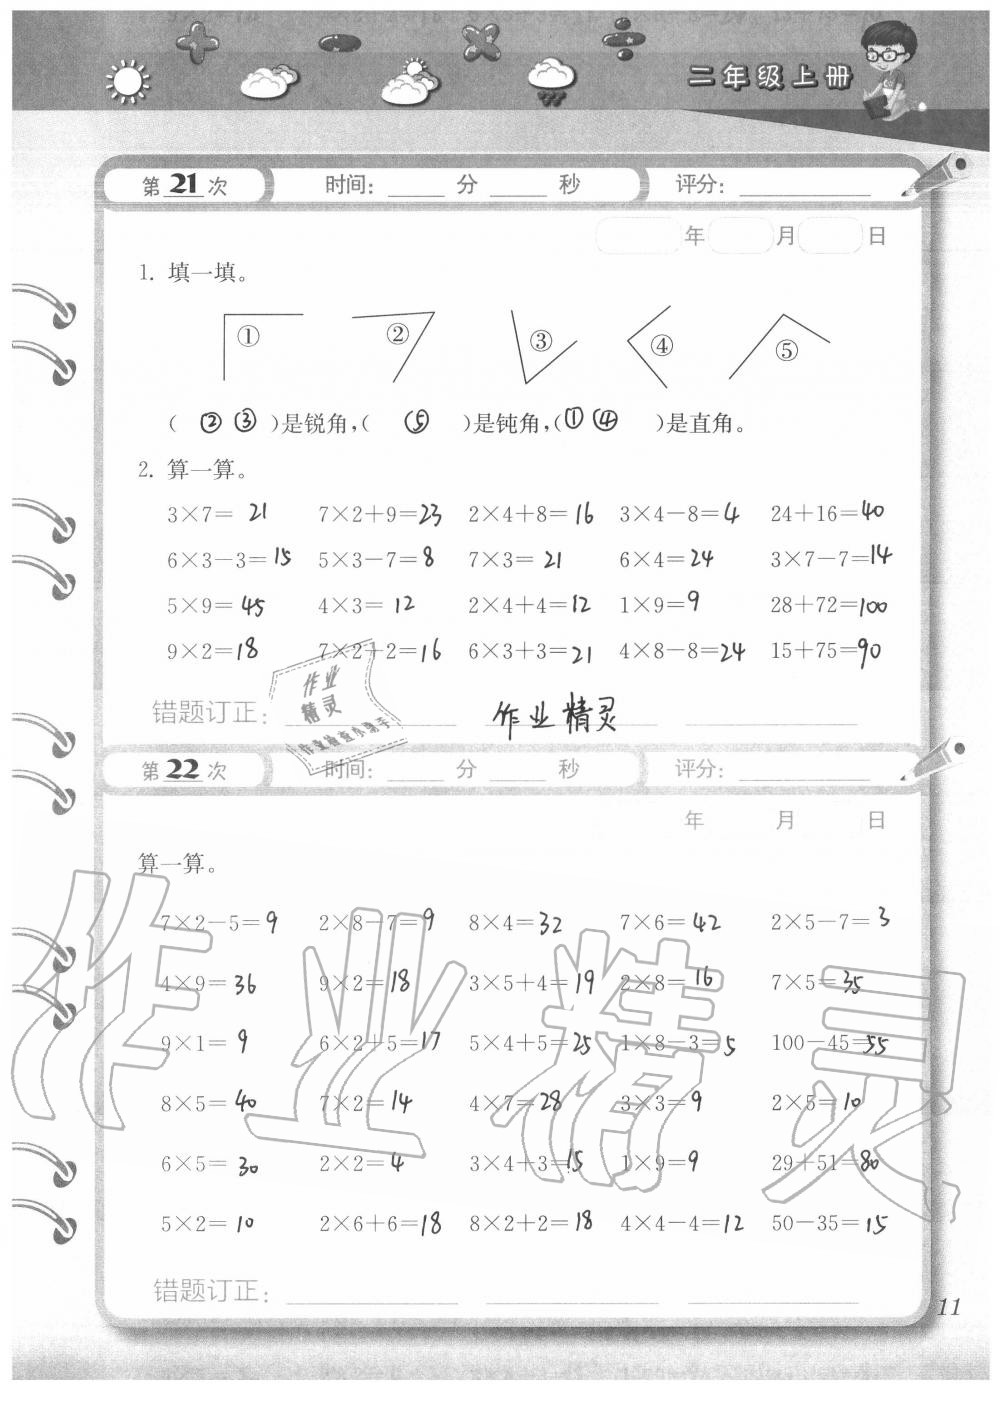 二年级上册
第 21 次 时间: 分 秒 评分:
年 月 日
1. 填一填。
① ② ③ ④ ⑤
( ② ③ )是锐角,( ⑤ )是钝角,( ① ④ )是直角。
2. 算一算。
3×7= 21 7×2+9=23 2×4+8=16 3×4-8=4 24+16=40
6×3-3=15 5×3-7=8 7×3= 21 6×4=24 3×7-7=14
5×9= 45 4×3= 12 2×4+4=12 1×9=9 28+72=100
9×2=18 7×2+2=16 6×3+3=21 4×8-8=24 15+75=90
错题订正: 作业精灵
作业
精灵
作业检查小助手
第 22 次 时间: 分 秒 评分:
年 月 日
算一算。
7×2-5=9 2×8-7=9 8×4=32 7×6=42 2×5-7=3
4×9=36 9×2=18 3×5+4=19 2×8=16 7×5=35
9×1=9 6×2+5=17 5×4+5=25 1×8-3=5 100-45=55
8×5=40 7×2=14 4×7=28 3×3=9 2×5=10
6×5=30 2×2=4 3×4+3=15 1×9=9 29+51=80
5×2=10 2×6+6=18 8×2+2=18 4×4-4=12 50-35=15
作业精灵
错题订正:
11